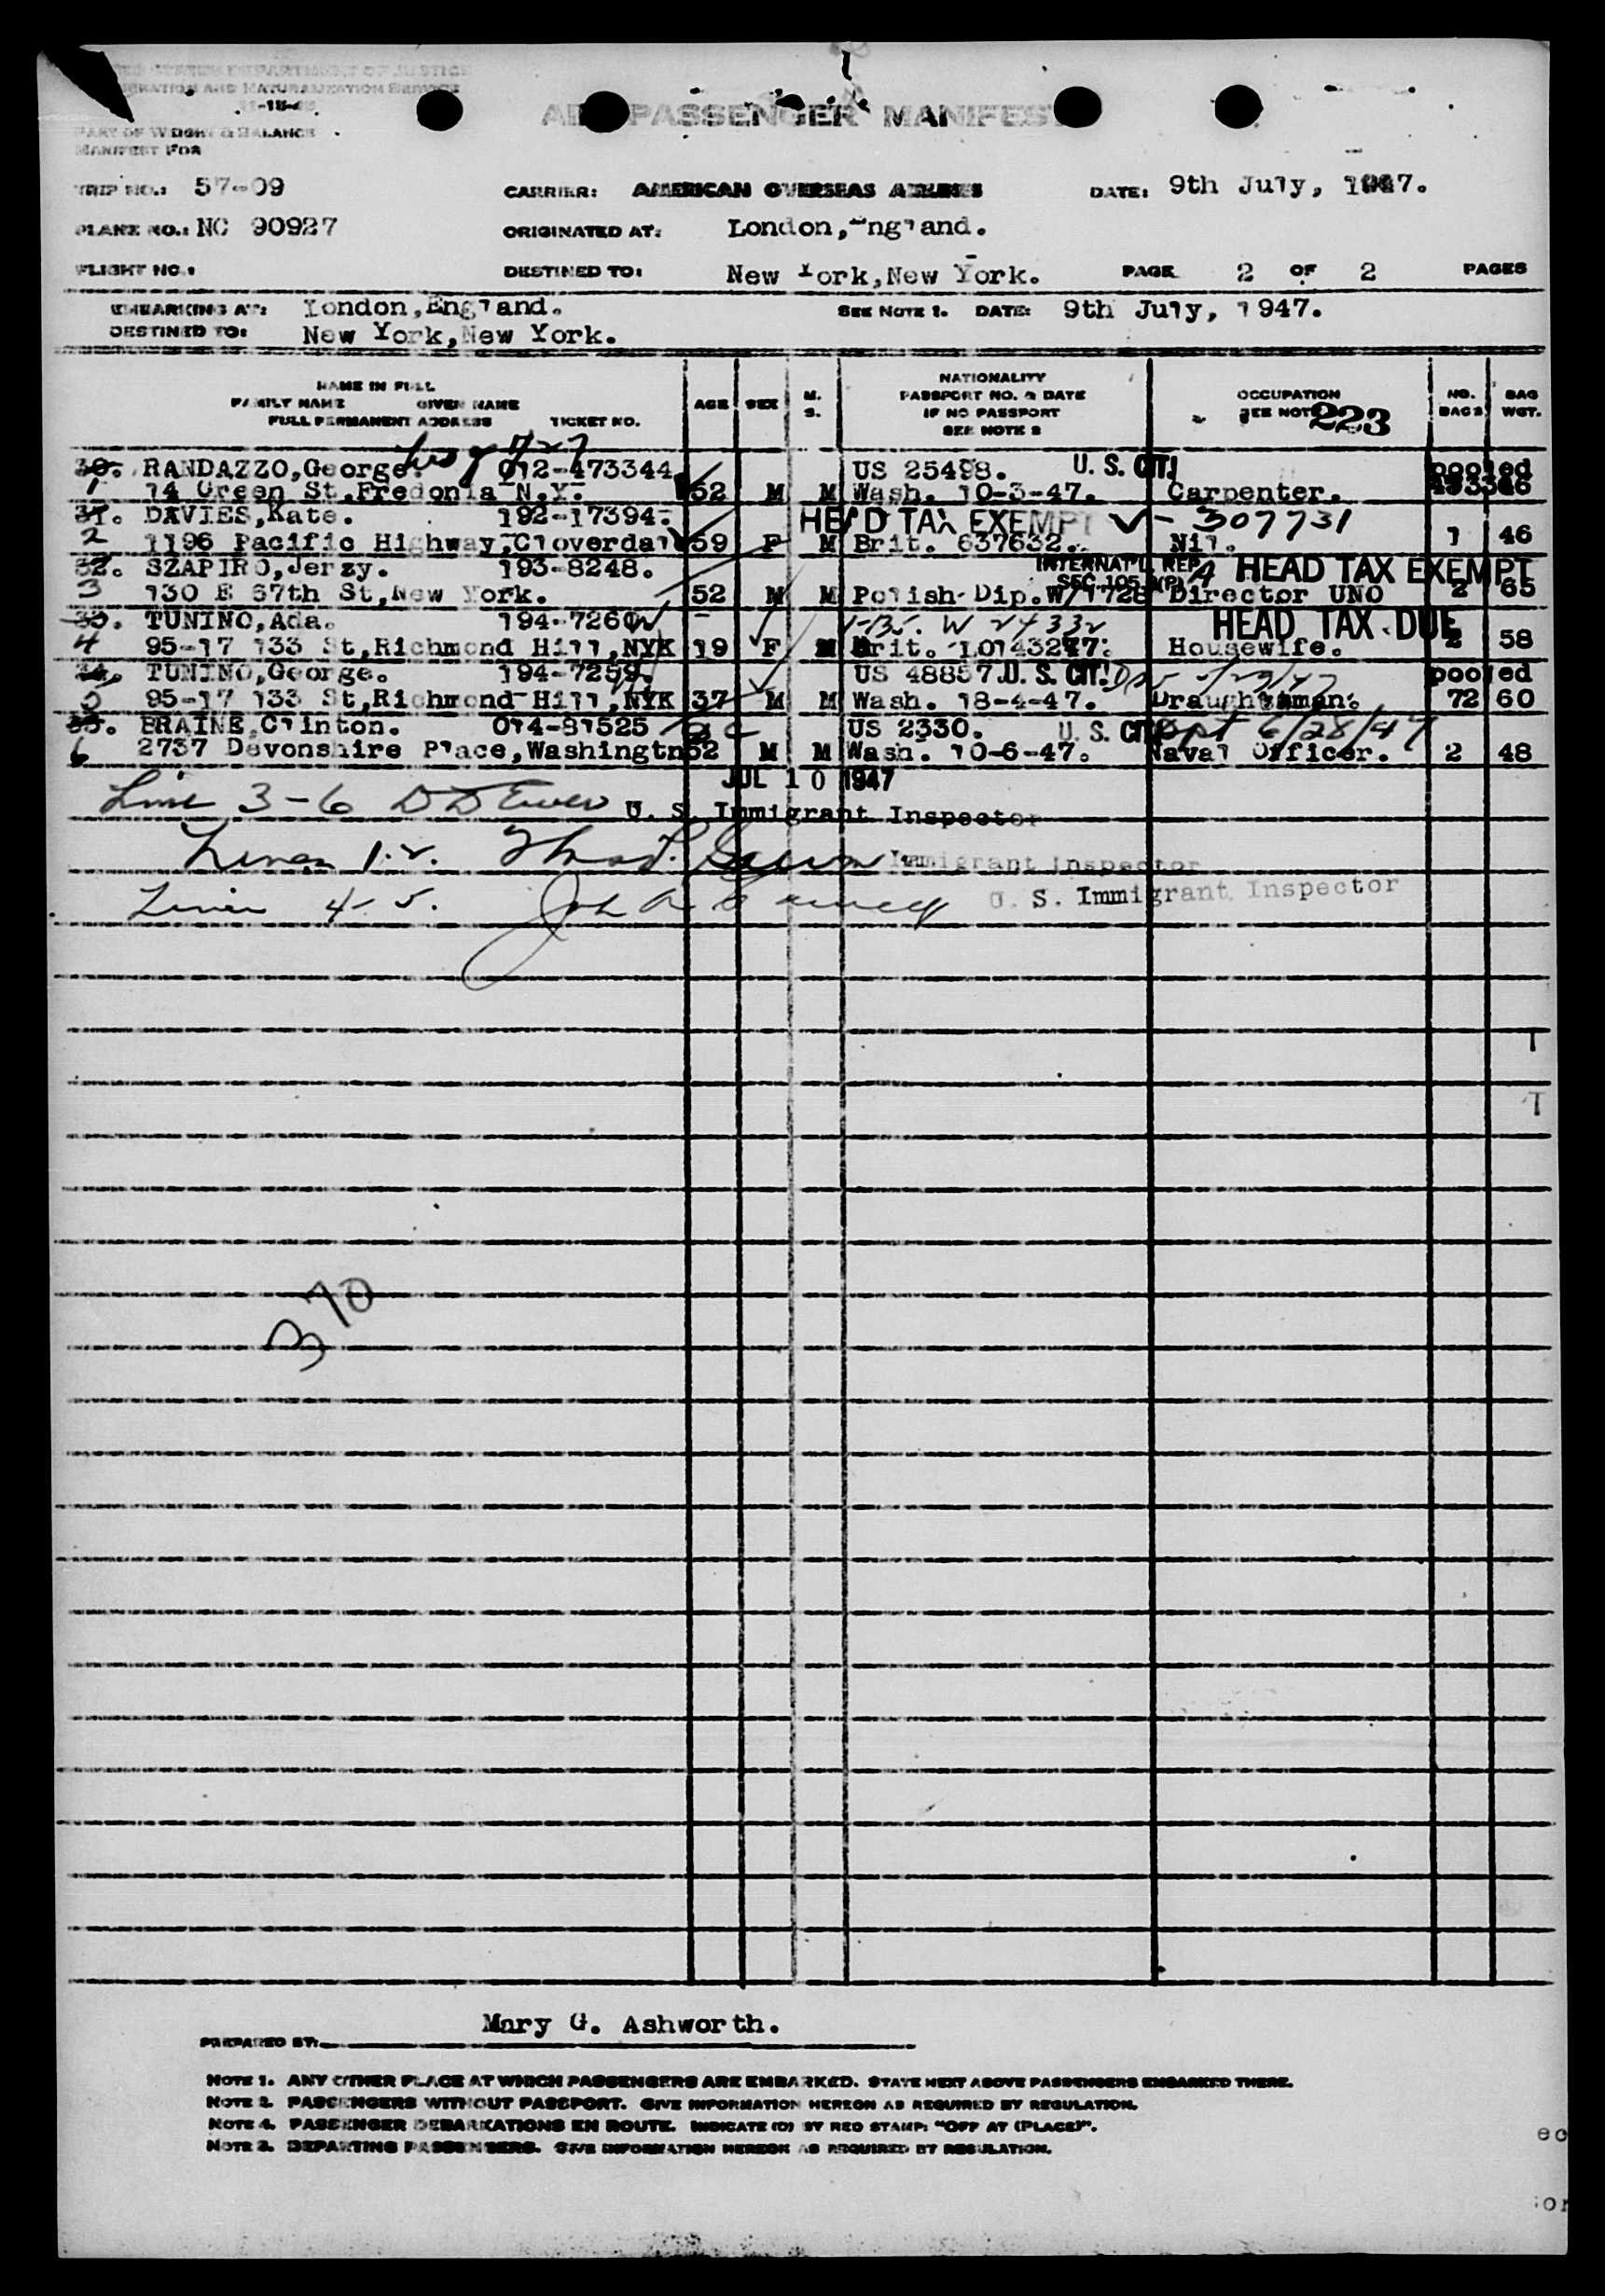 UNITED STATES DEPARTMENT OF JUSTICE
IMMIGRATION AND NATURALIZATION SERVICE
PART OF WEIGHT & BALANCE
MANIFEST FOR
AIR PASSENGER MANIFEST
TRIP NO.: 57-09 CARRIER: AMERICAN OVERSEAS AIRLINES DATE: 9th July, 1947.
PLANE NO.: NC 90927 ORIGINATED AT: London, England.
FLIGHT NO.: DESTINED TO: New York, New York. PAGE 2 OF 2 PAGES
EMBARKING AT: London, England. SEE NOTE 1. DATE: 9th July, 1947.
DESTINED TO: New York, New York.
NAME IN FULL
FAMILY NAME GIVEN NAME
FULL PERMANENT ADDRESS TICKET NO.
AGE SEX M. S.
NATIONALITY
PASSPORT NO. & DATE
IF NO PASSPORT
SEE NOTE 2
OCCUPATION
SEE NOTE 223
NO. BAGS BAG WGT.
30. RANDAZZO, George. 012-473344 US 25498. U. S. CIT. pooled
1 14 Green St, Fredonia N.Y. 52 M M Wash. 10-3-47. Carpenter.
31. DAVIES, Kate. 192-17394. HEAD TAX EXEMPT V-307731
2 1196 Pacific Highway, Cloverdale 59 F M Brit. 637632. Nil. 1 46
32. SZAPIRO, Jerzy. 193-8248. INTERNAT'L REP. HEAD TAX EXEMPT
3 130 E 67th St, New York. 52 M M Polish Dip. W/1728 Director UNO 2 65
33. TUNINO, Ada. 194-7260 W 24332 HEAD TAX DUE
4 95-17 133 St, Richmond Hill, NYK 19 F M Brit. Housewife. 2 58
34. TUNINO, George. 194-7259. US 48857. U. S. CIT. pooled
5 95-17 133 St, Richmond Hill, NYK 37 M M Wash. 18-4-47. Draughtsman. 72 60
35. BRAINE, Clinton. 014-81525 US 2330. U. S. CIT. Dpt 6/28/47
6 2737 Devonshire Place, Washingtn 52 M M Wash. 10-6-47. Naval Officer. 2 48
JUL 10 1947
Line 3-6 U. S. Immigrant Inspector
Lines 1.2. Immigrant Inspector
Lines 4-5. U. S. Immigrant Inspector
370
Mary G. Ashworth.
PREPARED BY:
NOTE 1. ANY OTHER PLACE AT WHICH PASSENGERS ARE EMBARKED. STATE NEXT ABOVE PASSENGERS EMBARKED THERE.
NOTE 2. PASSENGERS WITHOUT PASSPORT. GIVE INFORMATION HEREON AS REQUIRED BY REGULATION.
NOTE 4. PASSENGER DEBARKATIONS EN ROUTE. INDICATE (D) BY RED STAMP: "OFF AT (PLACE)".
NOTE 3. DEPARTING PASSENGERS. GIVE INFORMATION HEREON AS REQUIRED BY REGULATION.